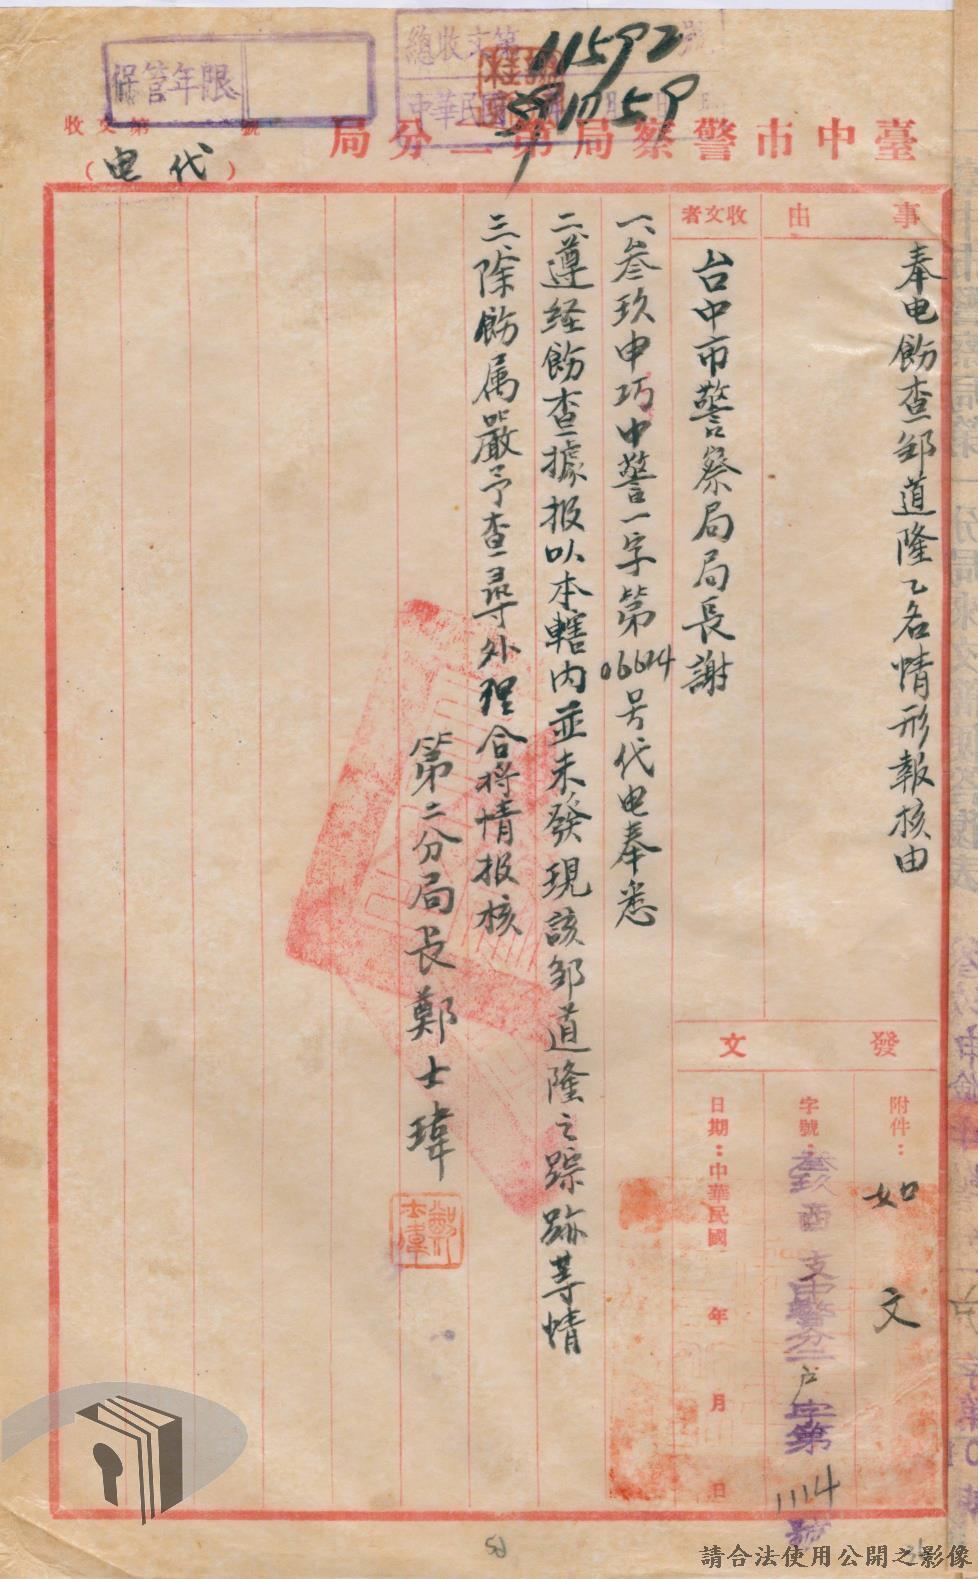 保管年限
總收文第 號
中華民國
11592
收文第 號
臺中市警察局第二分局
(代电)
事由
奉电飭查邹道隆乙名情形報核由
收文者
台中市警察局局長謝
發文
附件:如文
字號:叁玖酉支中警分二户字第1114號
日期:中華民國 年 月 日
一、叁玖申巧中警一字第06614号代电奉悉
二、遵经飭查據报以本轄内並未發現該邹道隆之踪跡等情
三、除飭属嚴予查尋外理合将情报核
第二分局长鄭士瑋
請合法使用公開之影像